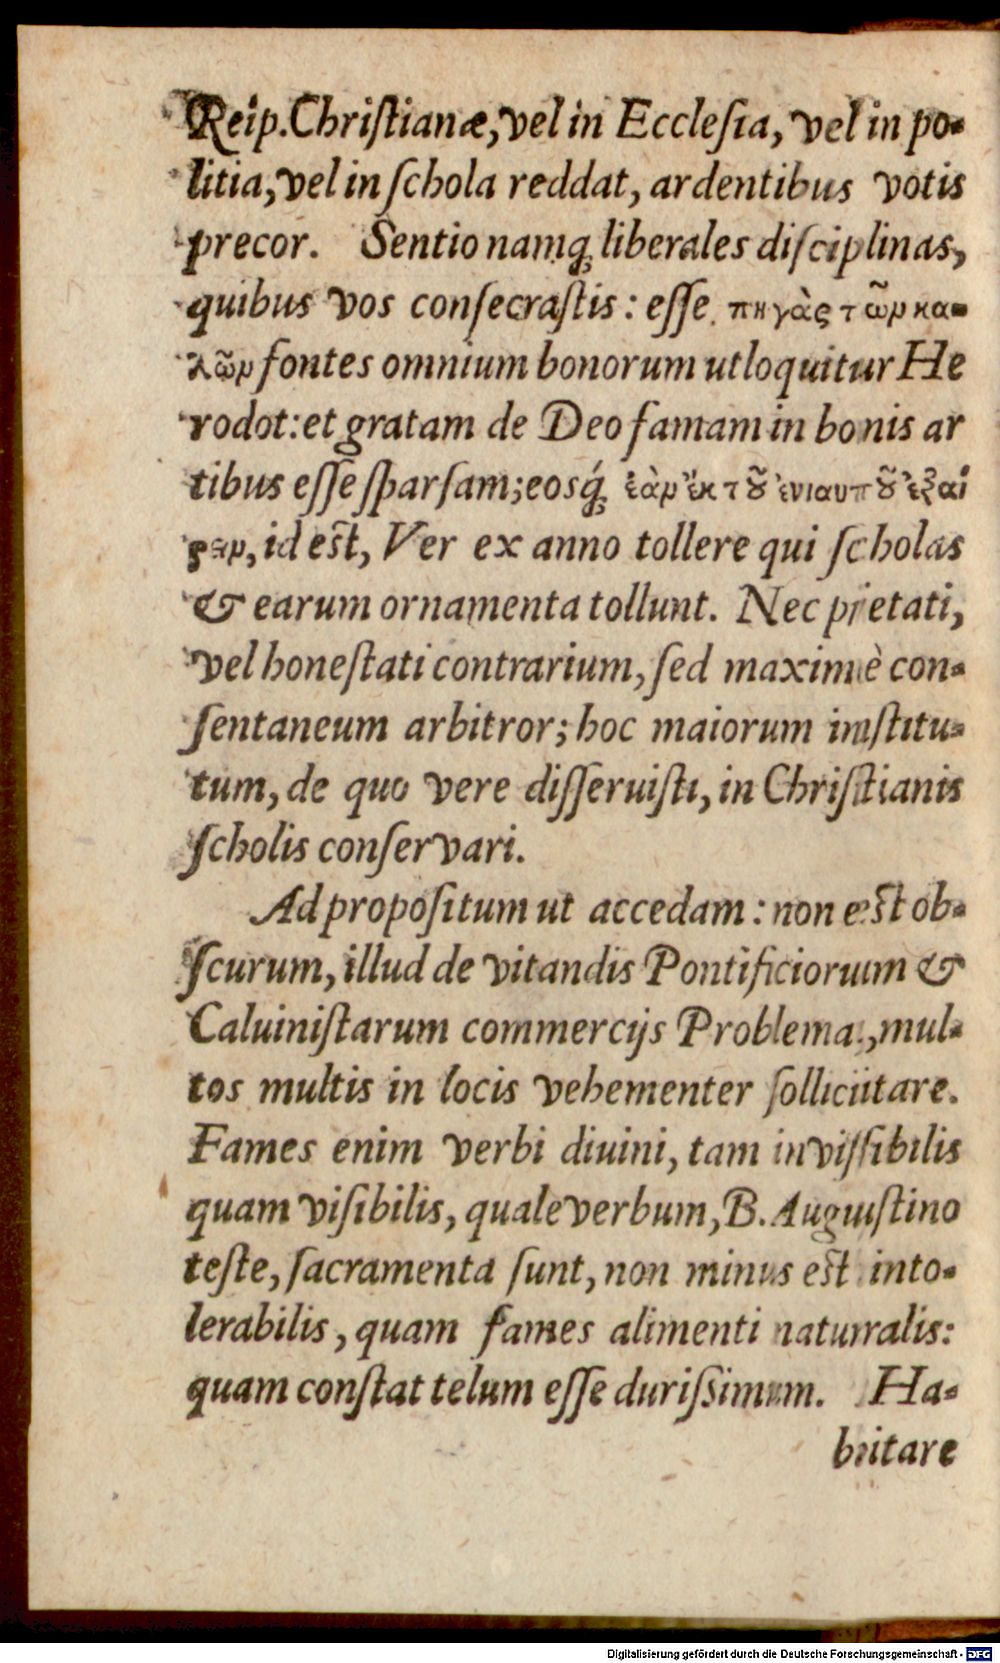 Reip. Christianæ, vel in Ecclesia, vel in po-
litia, vel in schola reddat, ardentibus votis
precor. Sentio namq; liberales disciplinas,
quibus vos consecrastis: esse πηγὰς τῶν κα-
λῶν fontes omnium bonorum ut loquitur He
rodot: et gratam de Deo famam in bonis ar
tibus esse sparsam; eosq́; ἐὰρ ἐκ τȣ͂ ἐνιαυτȣ͂ ἐξαι
ρειν, id est, Ver ex anno tollere qui scholas
& earum ornamenta tollunt. Nec pietati,
vel honestati contrarium, sed maximè con-
sentaneum arbitror; hoc maiorum institu-
tum, de quo vere disseruisti, in Christianis
scholis conservari.
Ad propositum ut accedam: non est ob-
scurum, illud de vitandis Pontificiorum &
Caluinistarum commercijs Problema, mul-
tos multis in locis vehementer sollicitare.
Fames enim verbi diuini, tam invisibilis
quam visibilis, quale verbum, B. Augustino
teste, sacramenta sunt, non minus est into-
lerabilis, quam fames alimenti naturalis:
quam constat telum esse durissimum. Ha-
bitare
Digitalisierung gefördert durch die Deutsche Forschungsgemeinschaft - DFG